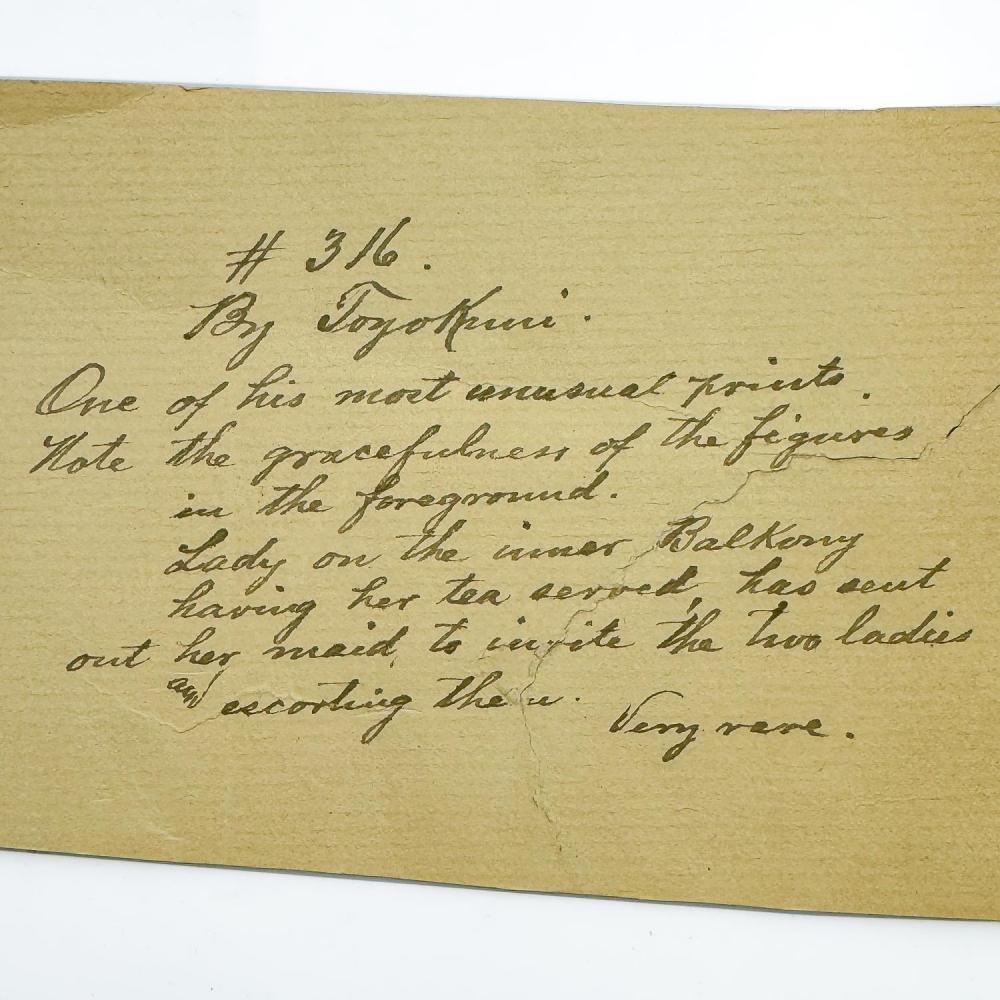 # 316.
By Toyokuni.
One of his most unusual prints.
Note the gracefulness of the figures
in the foreground.
Lady on the inner Balkony
having her tea served, has sent
out her maid, to invite the two ladies
and escorting them.
Very rare.